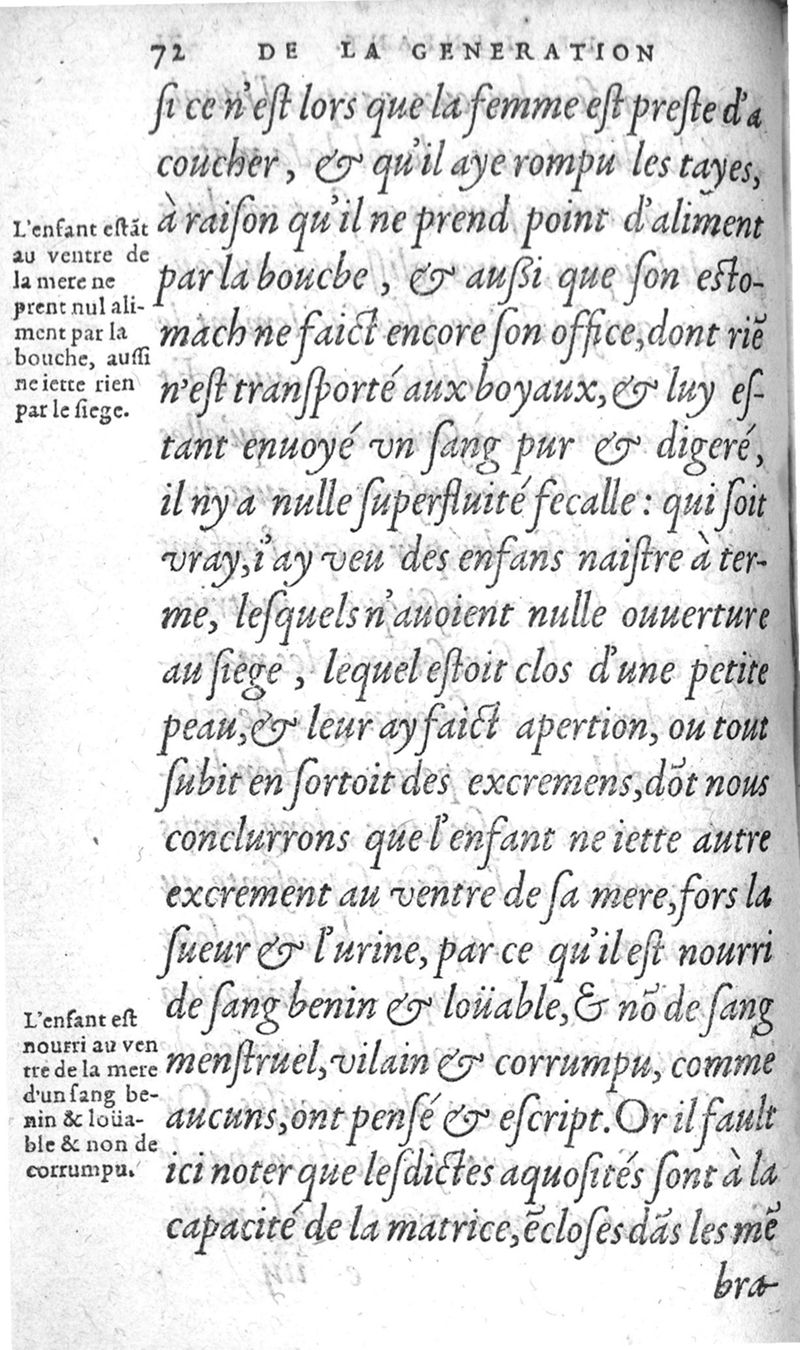 72 DE LA GENERATION
ſi ce n'eſt lors que la femme eſt preſte d'a
coucher, & qu'il aye rompu les tayes,
à raiſon qu'il ne prend point d'aliment
par la bouche, & außi que ſon eſto-
mach ne faict encore ſon office, dont riẽ
n'eſt tranſporté aux boyaux, & luy eſ-
tant enuoyé vn ſang pur & digeré,
il ny a nulle ſuperfluité fecalle : qui ſoit
vray, i'ay veu des enfans naiſtre à ter-
me, leſquels n'auoient nulle ouuerture
au ſiege, lequel eſtoit clos d'une petite
peau, & leur ay faict apertion, ou tout
ſubit en ſortoit des excremens, dõt nous
conclurrons que l'enfant ne iette autre
excrement au ventre de ſa mere, fors la
ſueur & l'urine, par ce qu'il eſt nourri
de ſang benin & loüable, & nõ de ſang
menſtruel, vilain & corrumpu, comme
aucuns, ont penſé & eſcript. Or il fault
ici noter que leſdictes aquoſités ſont à la
capacité de la matrice, ẽcloſes dãs les mẽ
bra-
L'enfant eſtãt
au ventre de
la mere ne
prent nul ali-
ment par la
bouche, auſſi
ne iette rien
par le ſiege.
L'enfant eſt
nourri au ven
tre de la mere
d'un ſang be-
nin & loüa-
ble & non de
corrumpu.